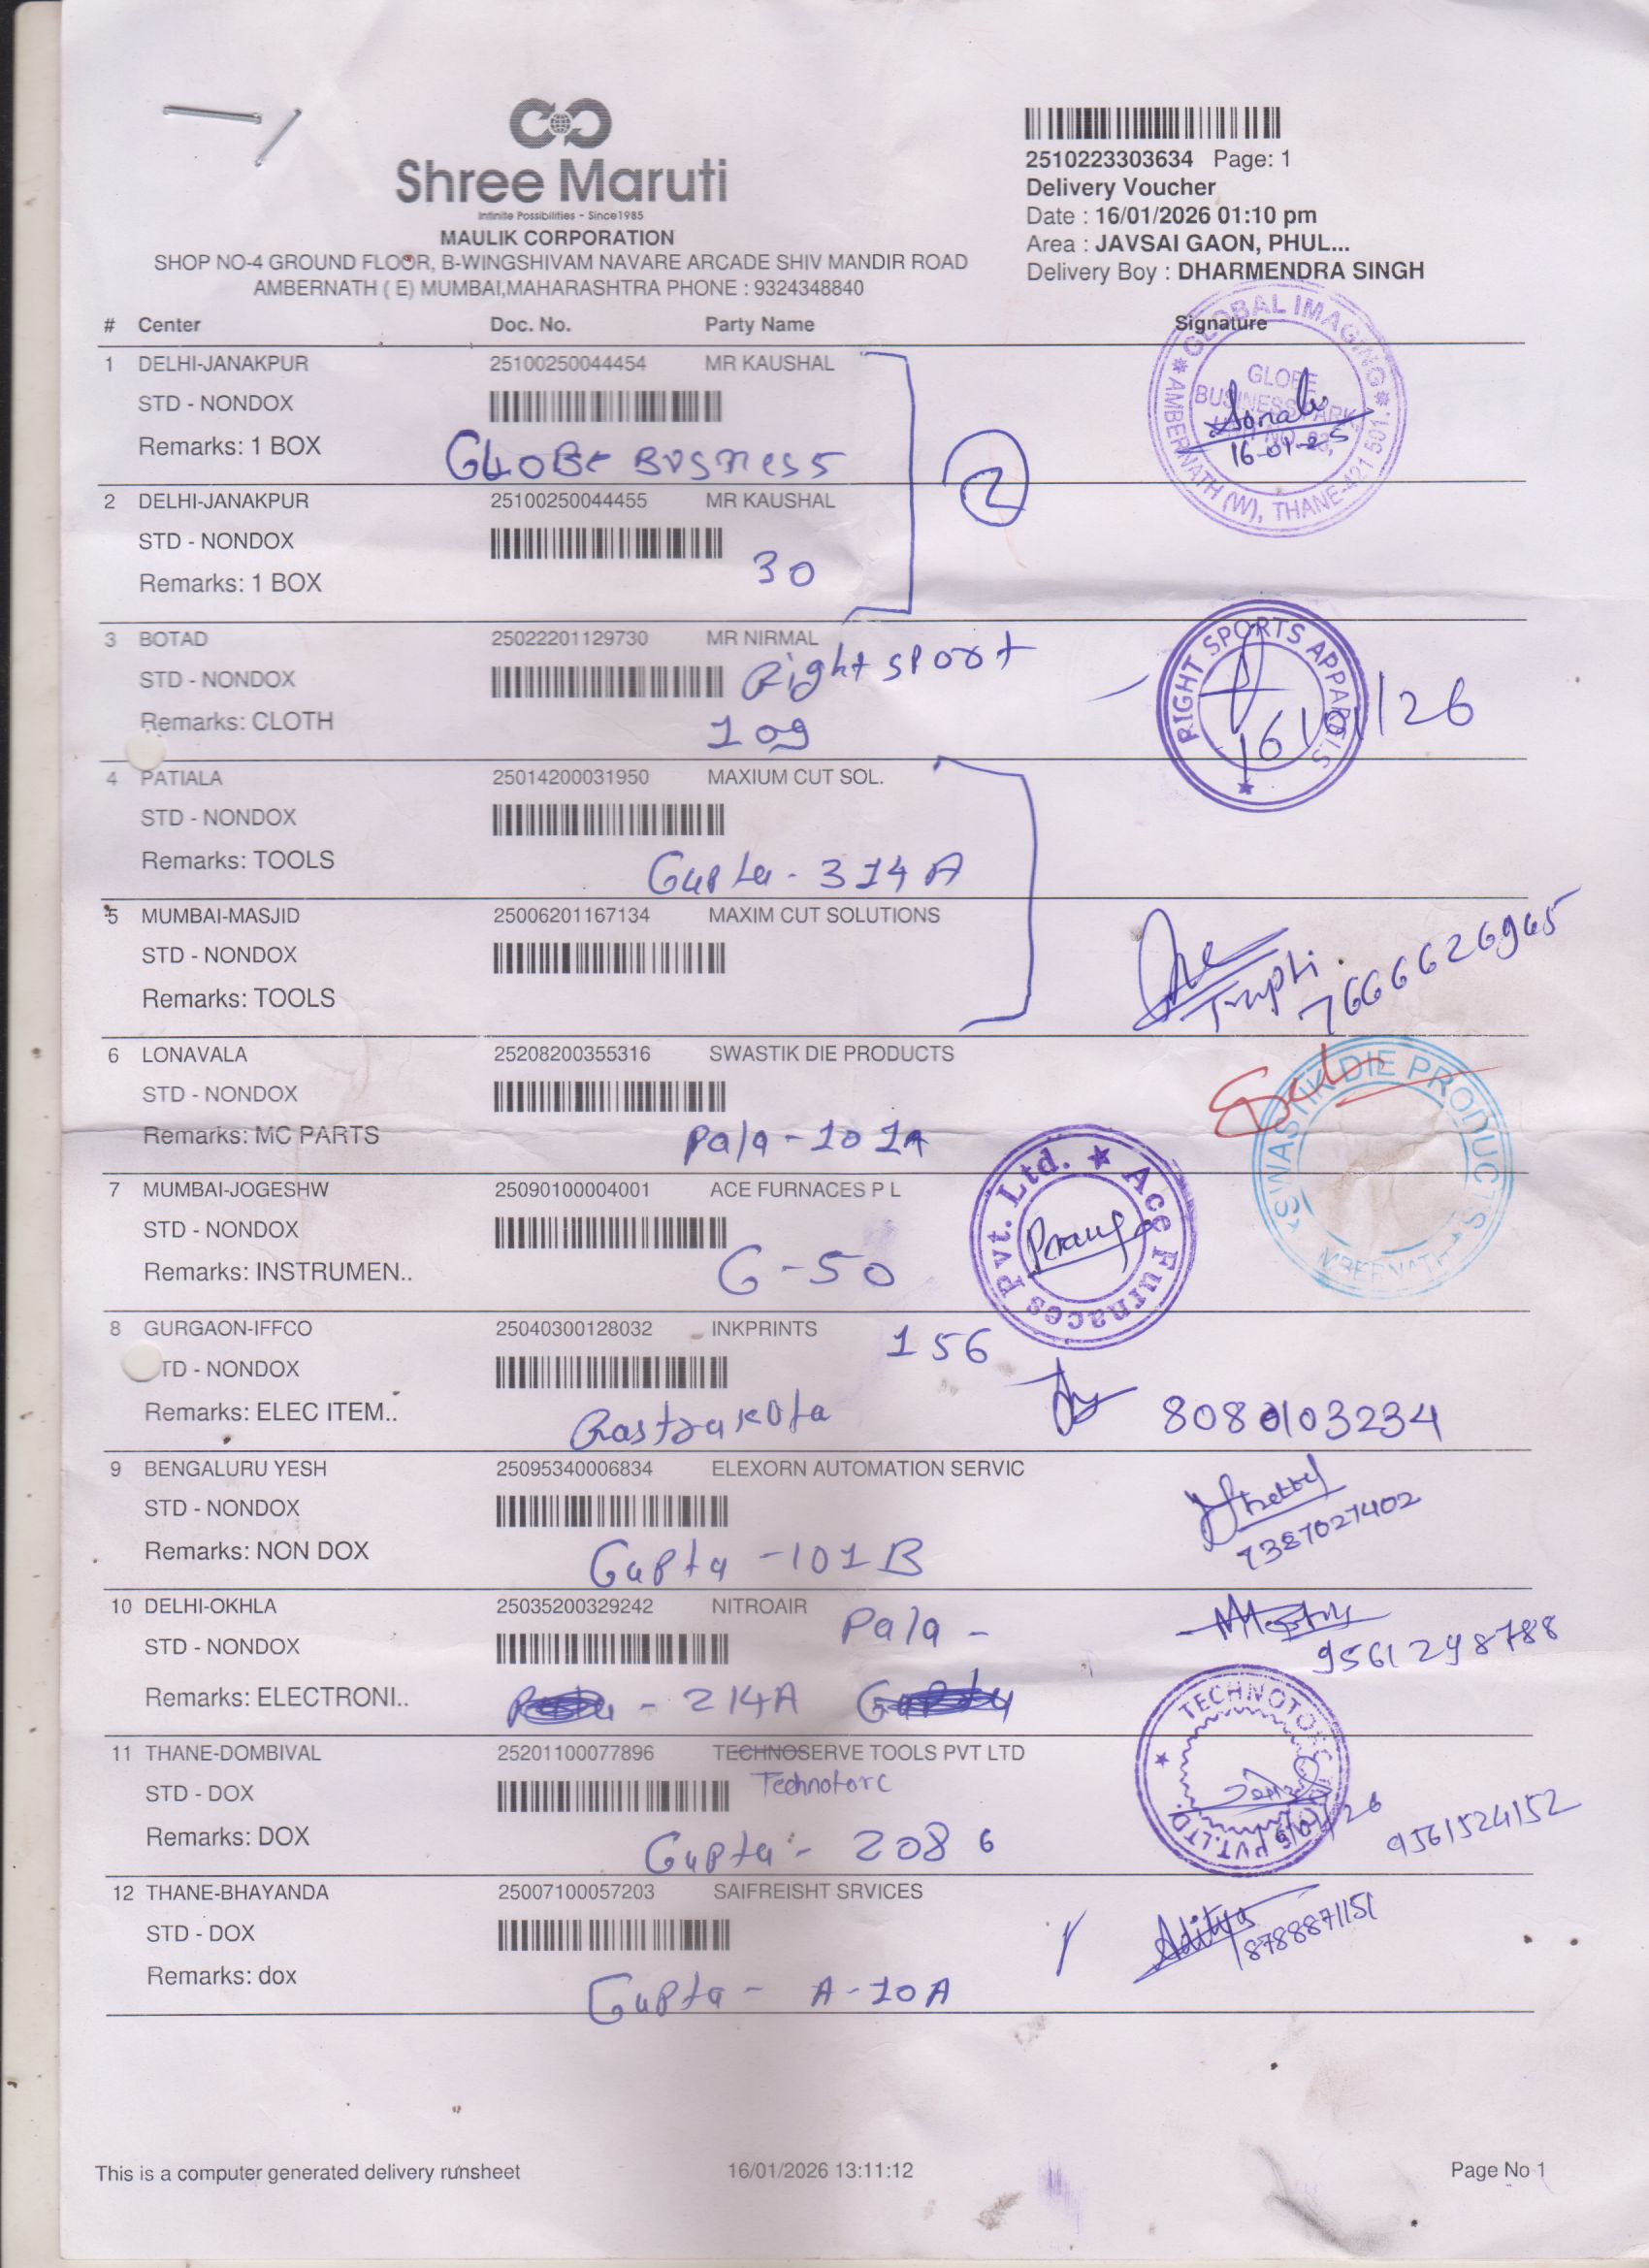 Shree Maruti
Infinite Possibilities - Since1985
MAULIK CORPORATION
SHOP NO-4 GROUND FLOOR, B-WINGSHIVAM NAVARE ARCADE SHIV MANDIR ROAD
AMBERNATH ( E) MUMBAI,MAHARASHTRA PHONE : 9324348840
2510223303634 Page: 1
Delivery Voucher
Date : 16/01/2026 01:10 pm
Area : JAVSAI GAON, PHUL...
Delivery Boy : DHARMENDRA SINGH
# Center Doc. No. Party Name Signature
1 DELHI-JANAKPUR 25100250044454 MR KAUSHAL
STD - NONDOX
Remarks: 1 BOX
GLOBE BUSINESS
GLOBAL IMAGING
AMBERNATH (W), THANE-421 501.
GLOBE
BUSINESS PARK
Sonali
16-01-25
2
2 DELHI-JANAKPUR 25100250044455 MR KAUSHAL
STD - NONDOX
Remarks: 1 BOX
30
3 BOTAD 25022201129730 MR NIRMAL
STD - NONDOX
Right sport
Remarks: CLOTH
109
RIGHT SPORTS APPARELS
16/01/26
4 PATIALA 25014200031950 MAXIUM CUT SOL.
STD - NONDOX
Remarks: TOOLS
Gupta - 314 A
5 MUMBAI-MASJID 25006201167134 MAXIM CUT SOLUTIONS
STD - NONDOX
Remarks: TOOLS
Trupti.
7666626965
6 LONAVALA 25208200355316 SWASTIK DIE PRODUCTS
STD - NONDOX
Remarks: MC PARTS
Pala - 101A
SWASTIK DIE PRODUCTS
7 MUMBAI-JOGESHW 25090100004001 ACE FURNACES P L
STD - NONDOX
Remarks: INSTRUMEN..
G-50
Ace Furnaces Pvt. Ltd.
8 GURGAON-IFFCO 25040300128032 INKPRINTS
156
TD - NONDOX
Remarks: ELEC ITEM..
Rastrakuta
8080103234
9 BENGALURU YESH 25095340006834 ELEXORN AUTOMATION SERVIC
STD - NONDOX
Remarks: NON DOX
Gupta - 101 B
Shetty
7387027402
10 DELHI-OKHLA 25035200329242 NITROAIR
Pala -
STD - NONDOX
Remarks: ELECTRONI..
- 214A
9561298788
11 THANE-DOMBIVAL 25201100077896 TECHNOSERVE TOOLS PVT LTD
STD - DOX
Technotorc
Remarks: DOX
Gupta - 208 6
TECHNOTORC
PVT. LTD.
9561524152
12 THANE-BHAYANDA 25007100057203 SAIFREISHT SRVICES
STD - DOX
Remarks: dox
Gupta - A-10A
Aditya
8788871151
This is a computer generated delivery runsheet 16/01/2026 13:11:12 Page No 1